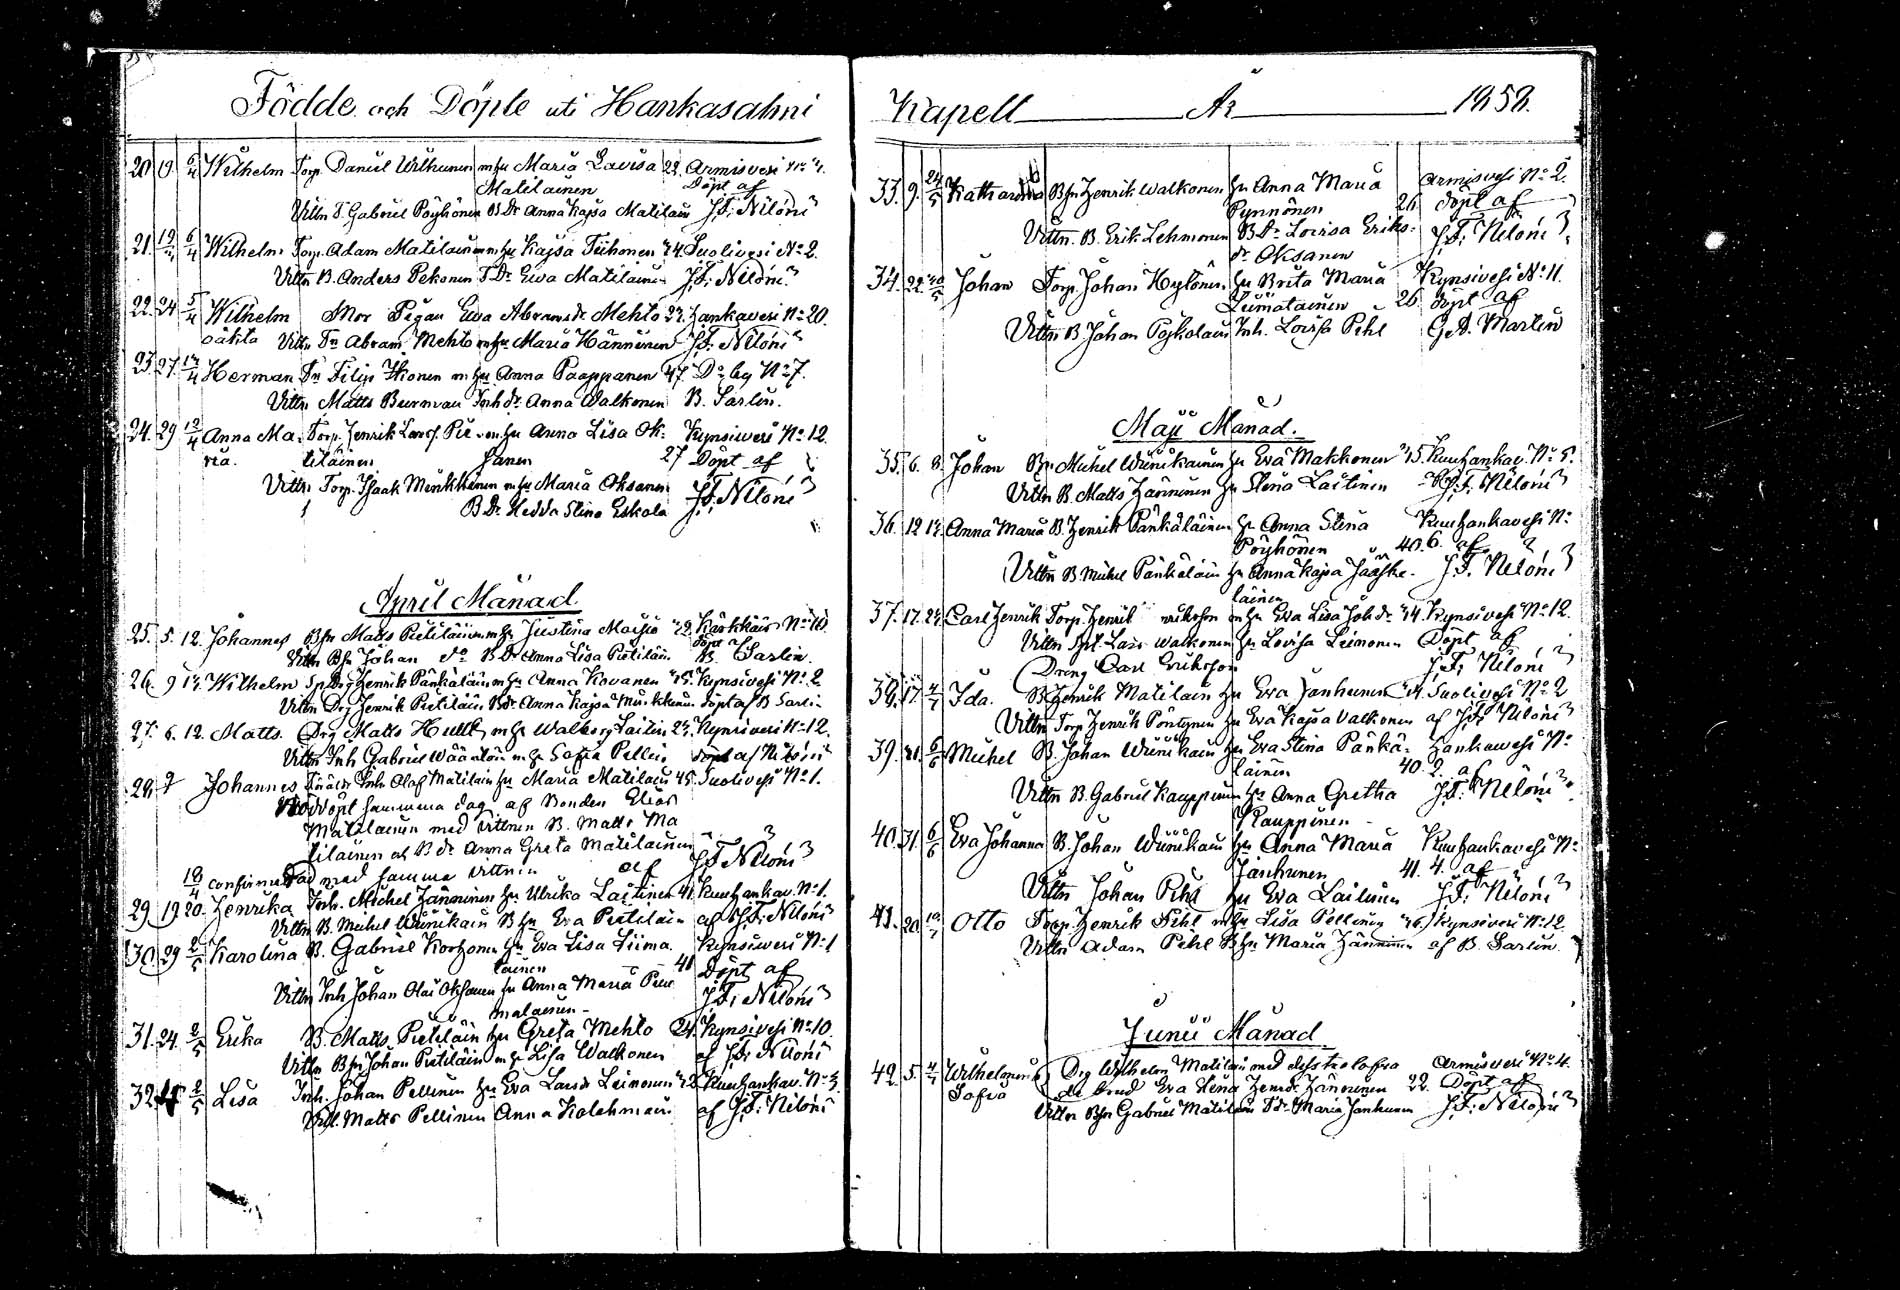 Födde och Döpte uti Hankasalmi
20 19 6/4 Wilhelm Torp. Daniel Wilhunen m hu Maria Lovisa 22. Armisvesi No 4.
Matilainen Döpt af
Vittn T. Gabriel Pöyhönen B Dr Anna Kajsa Matilain J.F. Niloni
21. 19 6/4 Wilhelm Torp. Adam Matilainen m hu Kajsa Tiihonen 24. Suolivesi No 2.
Vittn B. Anders Pekonen T Dr Ewa Matilain J.F. Niloni
22. 24 5/4 Wilhelm Mor Pigan Ewa Abramsdr Mehto 22. Hankavesi No 20.
oäkta Vittn Tn Abram Mehto m hu Maria Hänninen J.F. Niloni
23 27. /4 Herman Tn Filip Ikonen m hu Anna Paappanen 47. Do by No 7.
Vittn Matts Burman Inh dr Anna Walkonen B. Sarlin.
24. 29 12/4 Anna Ma- Torp. Henrik Larsson Pie- m hu Anna Lisa Ok- Kynsiwesi No 12.
ria. tiläinen sanen 27 Döpt af
Vittn Torp. Isaak Minkkinen m hu Maria Oksanen J.F. Niloni
B Dr Hedda Stina Eskola
April Månad
25. 5. 12. Johannes Bsn Matts Pietiläinen m hu Justina Maijio 22. Kärkkäis No 10.
Vittn Bsn Johan do B Dr Anna Lisa Pietiläin B. Sarlin.
26. 9 Wilhelm Drg Henrik Pänkäläin m hu Anna Kovanen 25. Kynsivesi No 2
Vittn Drg Henrik Pietiläin Bdr Anna Kajsa Minkkinen döpt af B Sarlin
27. 6. 12. Matts Drg Matts Hult m hu Walborg Laitin 22. Kynsivesi No 12.
Vittn Inh Gabriel Wäänäin m hu Sofia Pellin döpt af Niloni
28. 9 Johannes Inh Olof Matilain hu Maria Matilain 45. Suolivesi No 1.
Nöddöpt samma dag af Bonden Elias
Matilainen med Vittnen B. Matts Ma
tilainen och B dr Anna Greta Matilainen
18/4 confirmerad med samma Vittnen af J.F. Niloni
29 19 20. Henrika Inh. Michel Hänninen hu Ulrika Laitinen 41. Kuuhankav. No 1.
Vittn B. Michel Wiinikain B hu Eva Pietiläin af J.F. Niloni
30 29 2/5 Karolina B. Gabriel Korhonen hu Eva Lisa Liima. Kynsiwesi No 1
tainen 41 Döpt af
Vittn Inh Johan Olai Oksanen hu Anna Maria Puu J.F. Niloni
malainen
31. 24. 2/5 Erika B. Matts Pietiläin hu Greta Mehto 24. Kynsivesi No 10.
Vittn Bsn Johan Pietiläin m hu Lisa Walkonen af J.F. Niloni
32. 2/5 Lisa Inh. Johan Pellinen hu Eva Larsdr Leimonen 22 Kuuhankav. No 3.
Vittn. Matts Pellinen Anna Kolehmain af J.F. Niloni
Kapell År 1858.
33. 9. 24/5 Katharina Bsn Henrik Walkonen hu Anna Maria Armisvesi No 2.
Pynnönen 26. döpt af
Vittn. B. Erik Lehmonen B Dr Lovisa Eriks- J.F. Niloni
dr Oksanen
34. 22. /5 Johan Torp. Johan Hytönen hu Brita Maria Kynsivesi No 11.
Liimatainen 26. döpt af
Vittn B Johan Pöykolain Inh. Lovisa Pihl G.A. Martin
Maji Månad.
35. 6. 8. Johan Bsn Michel Wiinikainen hu Eva Makkonen 45. Kuuhankav. No 5.
Vittn B. Matts Hänninen hu Stina Laitinen J.F. Niloni
36. 12 Anna Maria B. Henrik Pänkäläinen hu Anna Stina Kuuhankavesi No
Pöyhönen 40. 6. af
Vittn B. Michel Pänkäläin hu Anna Kajsa Jääske- J.F. Niloni
läinen
37. 17. 24. Carl Henrik Torp. Henrik nrikson m hu Eva Lisa Joh dr 24. Kynsivesi No 12.
Vittn Lars Walkonen hu Lovisa Leimonen Döpt af
Dreng Carl Erikson J.F. Niloni
38. 17. Ida. B. Henrik Matilain hu Eva Janhunen 24. Suolivesi No 2
Vittn Torp Henrik Pöntynen hu Eva Kajsa Valkonen af J.F. Niloni
39. 21. 6/6 Michel B. Johan Wiinikain hu Eva Stina Pänkä- Hankawesi No
läinen 40. 2. af
Vittn B. Gabriel Kauppinen hu Anna Gretha J.F. Niloni
Kauppinen
40. 31. 6/6 Eva Johanna B. Johan Wiinikain hu Anna Maria Kuuhankavesi No
Janhunen 41. 4. af
Vittn Johan Pihl hu Eva Laitinen J.F. Niloni
41. 20 Otto Torp. Henrik Pihl m hu Lisa Pellinen 26. Kynsivesi No 12.
Vittn Adam Pihl B hu Maria Hänninen af B. Sarlin.
Junii Månad
42. 5. Wilhelmina Drg Wilhelm Matilain med dess trolofva Armisvesi No 4.
Sofia de brud Eva Stina Henrdr Hänninen 22. Döpt af
Vittn Bsn Gabriel Matilain T dr Maria Janhunen J.F. Niloni